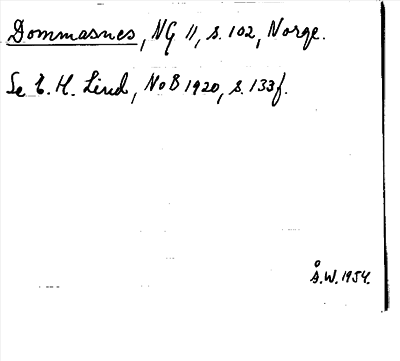 Dommasnes, NG 11, s. 102, Norge.
Se E. H. Lind, NoB 1920, s. 133f.
Å.W. 1954.